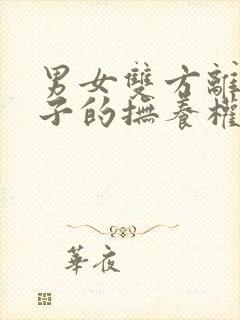 男女雙方離
子的撫養權
華夜